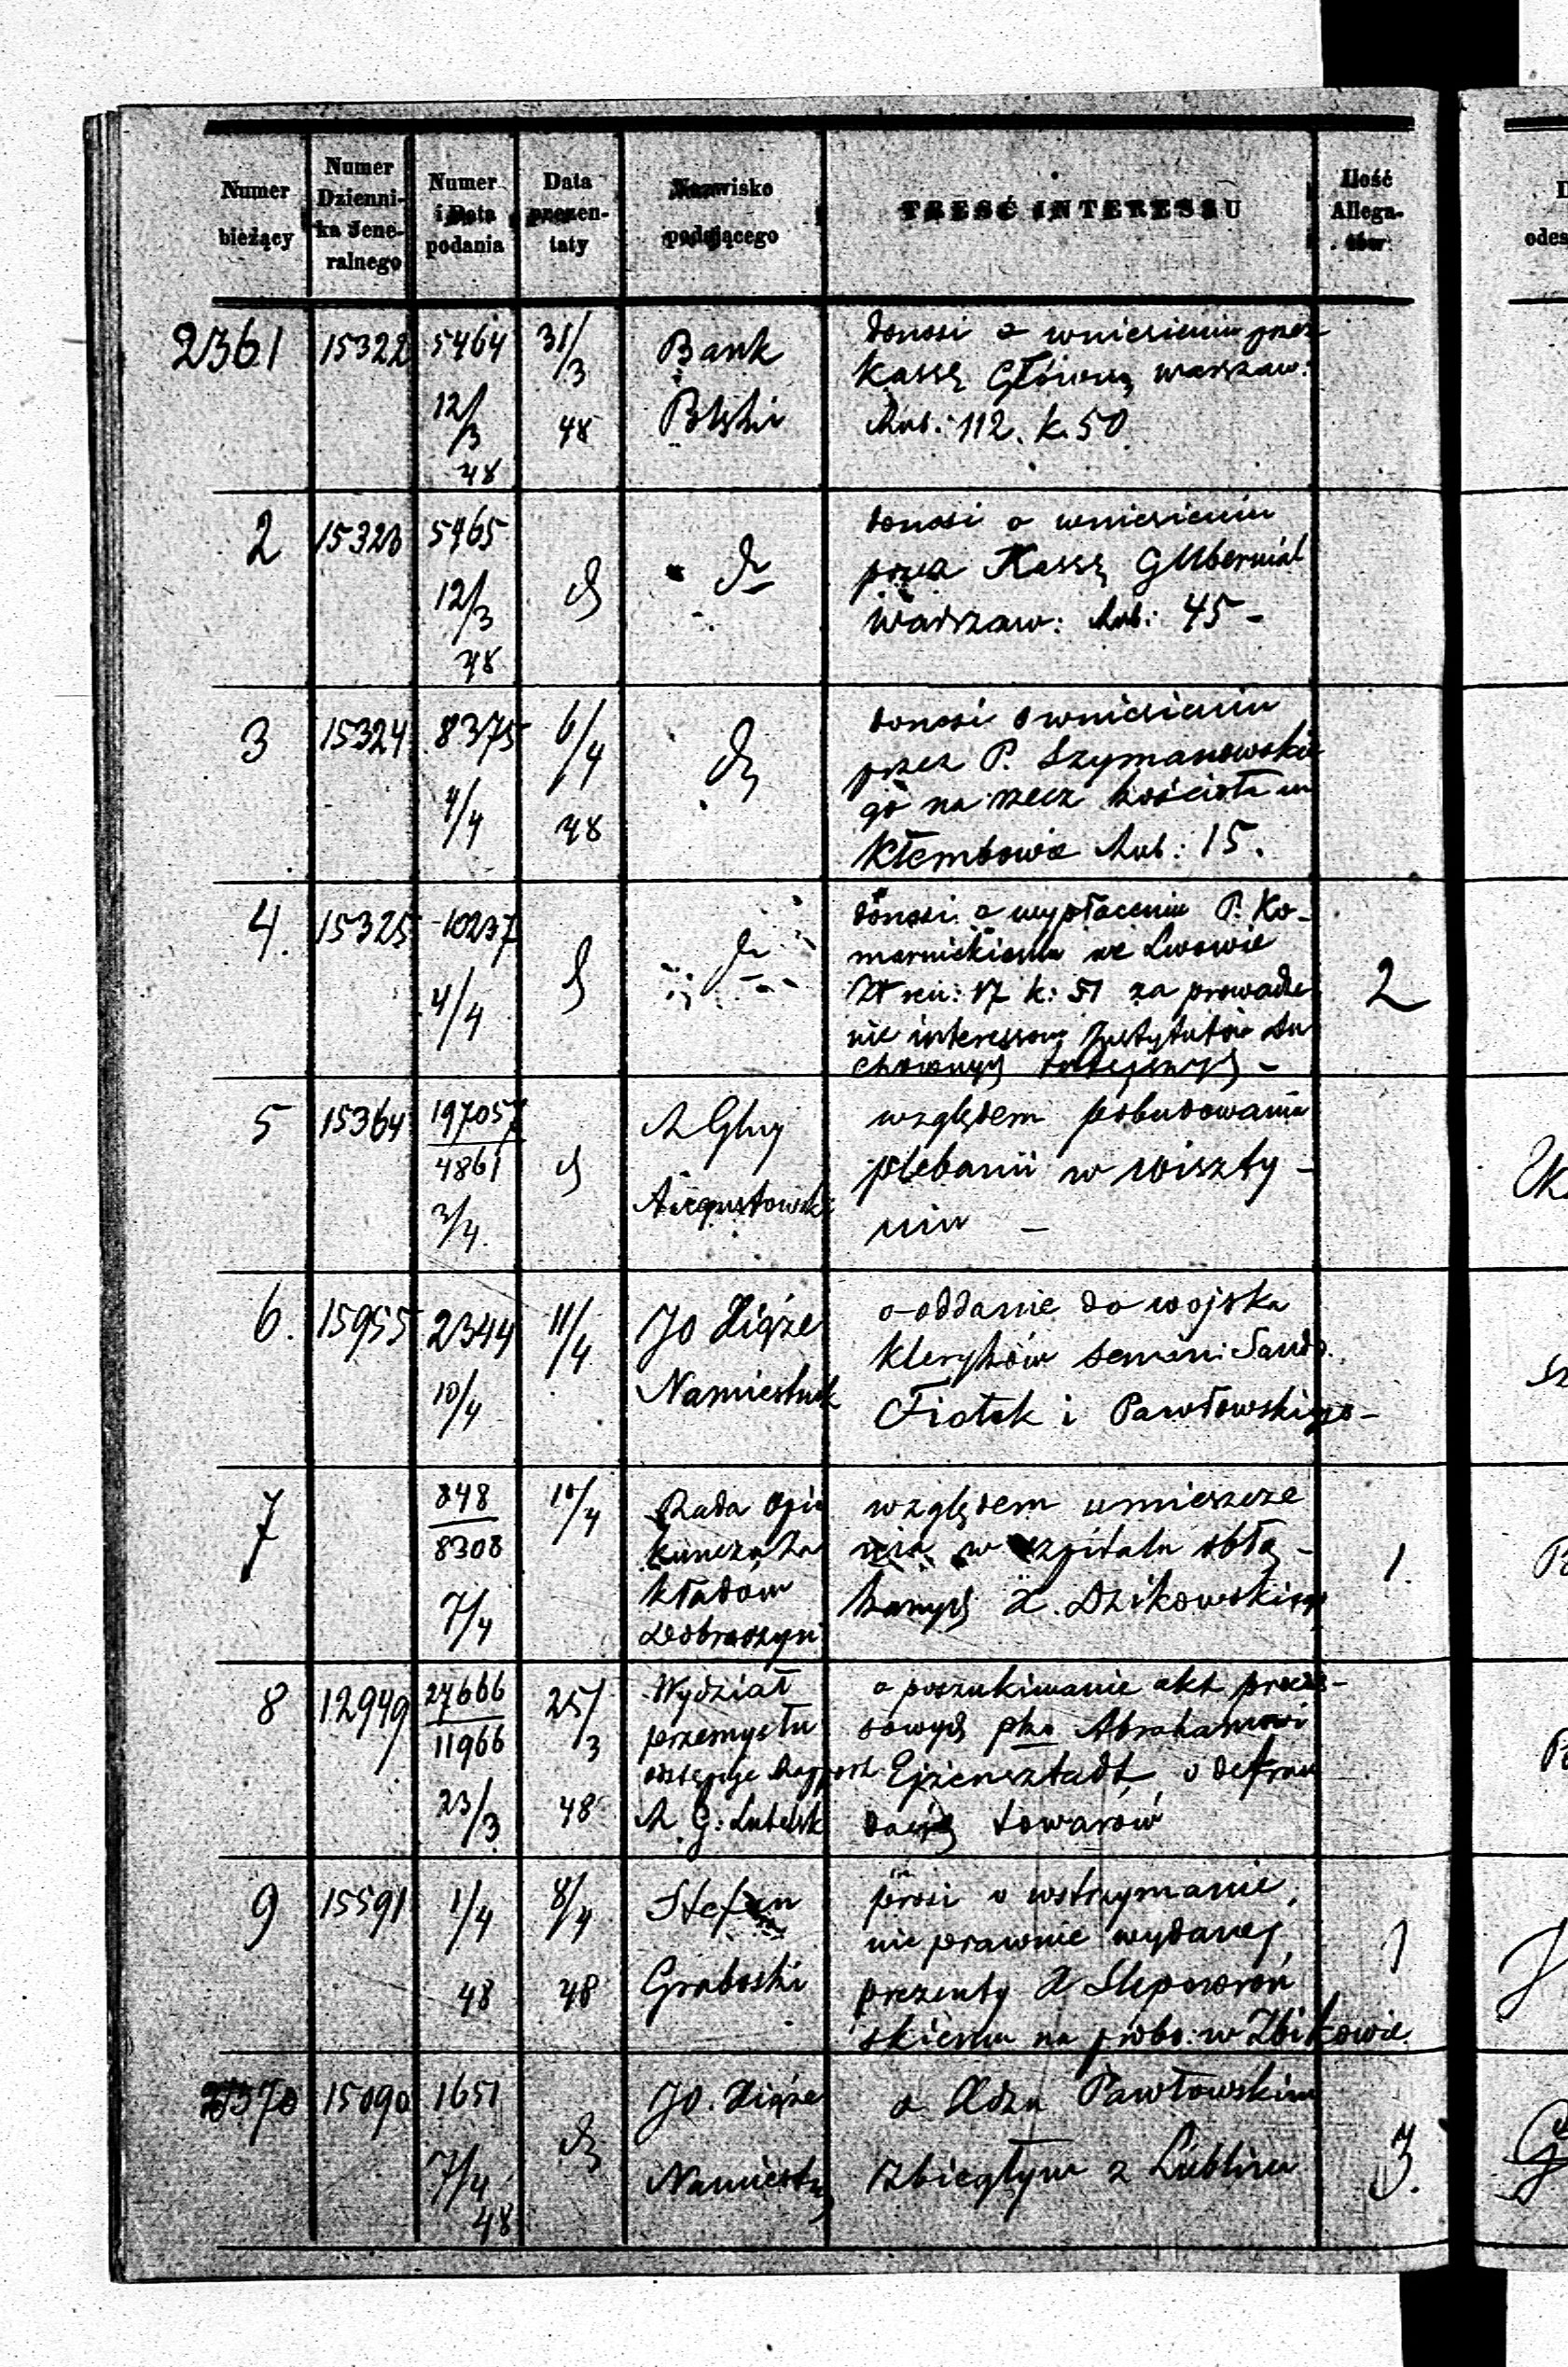 Numer bieżący | Numer Dziennika Jeneralnego | Numer i Data podania | Data prezentaty | Nazwisko podającego | TREŚĆ INTERESSU | Ilość Allega-
2361 | 15322 | 5464 12/3 48 | 31/3 48 | Bank Polski | donosi o wniesieniu przez
Kassę Główną warszaw:
Rub: 112. k. 50
2 | 15323 | 5465 12/3 48 | d | do | donosi o wniesieniu
przez Kassę GUbernial
Warszaw: Rub: 45 -
3 | 15324 | 8375 4/4 | 6/4 48 | do | donosi o wniesieniu
przez P. Szymanowskie
go na rzecz kościoła w
Kłembowie Rub: 15.
4. | 15325 | 10237 4/4 | d | do | donosi o wypłaceniu P. Ko-
marnickiemu we Lwowie
Zł reń: 17 k: 51 za prowadze
nie interessów Instytutów Du
chownych tutejszych - | 2
5 | 15364 | 197057/4861 3/4. | d | R Glny Augustowski | względem pobudowania
plebanii w Wiszty-
niu -
6. | 15955 | 2344 10/4 | 11/4 | JO Xiąże Namiestnik | o oddanie do wojska
kleryków semin: Sando.
Fiołek i Pawłowskiego -
7 | 848/8308 7/4 | 10/4 | Rada Opie
kuncza Za
kładów
Dobroczyn | względem umieszcze
nia w szpitalu obłą-
kanych X. Dzikowskiego | 1.
8 | 12949 | 27666/11966 23/3 | 25/3 48 | Wydział
przemysłu
odstępuje Rapport
R. G: Lubelsk | o poszukiwanie akt proces-
sowych pko Abrahamowi
Ejzensztadt o defrau
dacją towarów
9 | 15591 | 1/4 48 | 8/4 48 | Stefan Graboski | prosi o wstrzymanie,
nie prawnie wydanej
prezenty X Ślepowroń
skiemu na probo: w Zbikowie. | 1
2370 | 15090 | 1651 7/4 48 | do | JO. Xiąże Namiestn | o Xdzu Pawłowskim
zbiegłym z Lublina | 3.